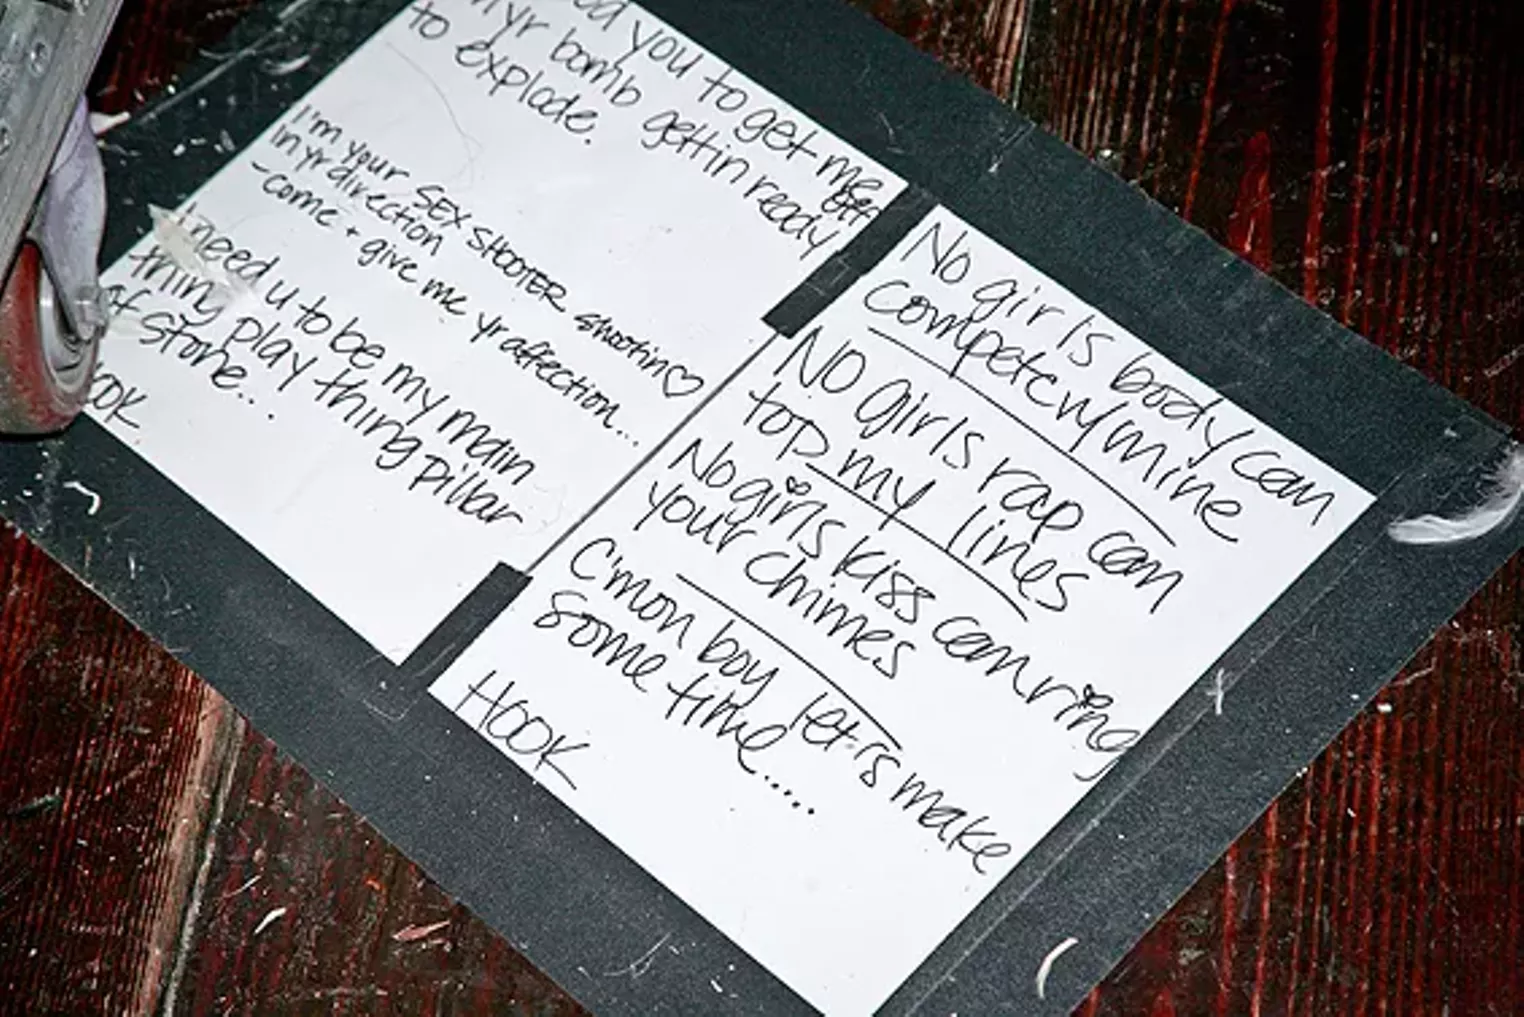 you to get me off
yr bomb gettin ready
to explode.
I'm your SEX SHOOTER shootin♡
in yr direction
-come + give me yr affection...
I need u to be my main
thing play thing pillar
of stone...
No girls body can
compete w/ mine
NO girls rap can
top my lines
No girls kiss can ring
your chimes
C'mon boy let's make
some time.....
HOOK